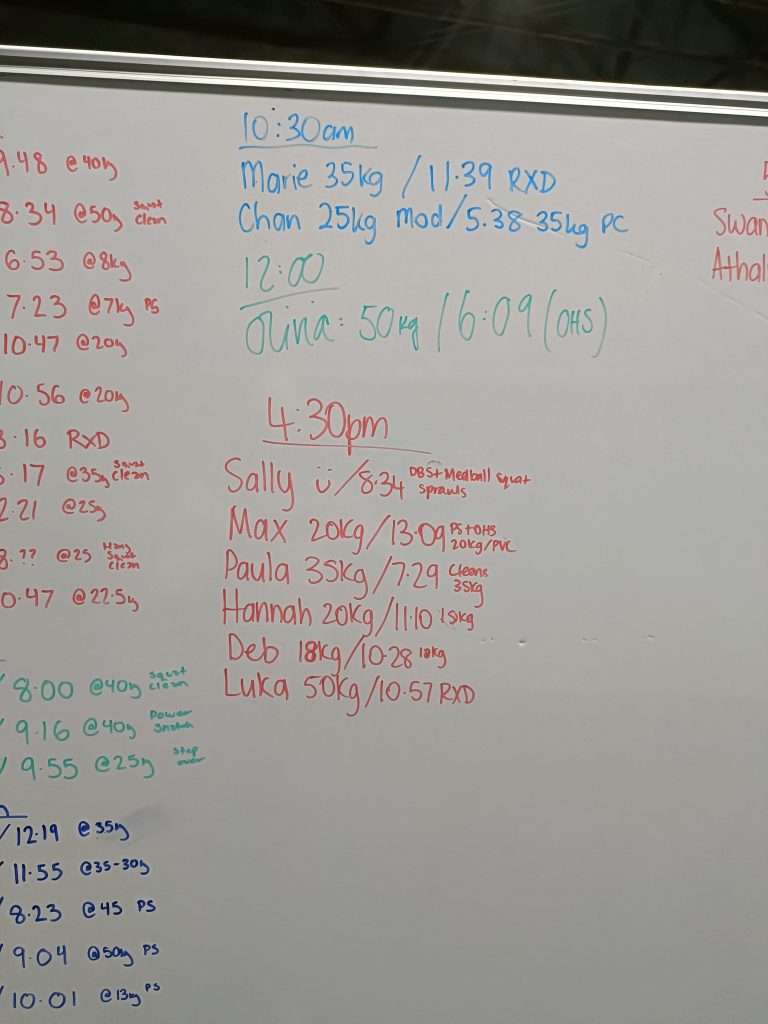 9.48 @40kg
8.34 @50kg Squat Clean
6.53 @8kg
7.23 @7kg PS
10.47 @20kg
10.56 @20kg
.16 RXD
.17 @35kg Squat Clean
2.21 @25kg
8.?? @25 Hang Squat Clean
0.47 @22.5kg
8.00 @40kg Squat Clean
9.16 @40kg Power Snatch
9.55 @25kg Step over
/12.19 @35kg
11.55 @35-30kg
8.23 @45 PS
9.04 @50kg PS
10.01 @13kg PS
10:30am
Marie 35kg /11.39 RXD
Chan 25kg mod/5.38 35kg PC
12:00
Olivia: 50kg /6:09 (OHS)
4:30pm
Sally ü/8.34 DBS+Medball squat sprawls
Max 20kg/13.09 PS+OHS 20kg/PVC
Paula 35kg/7.29 Cleans 35kg
Hannah 20kg/11.10 15kg
Deb 18kg/10.28 18kg
Luka 50kg/10.57 RXD
Swan
Athal